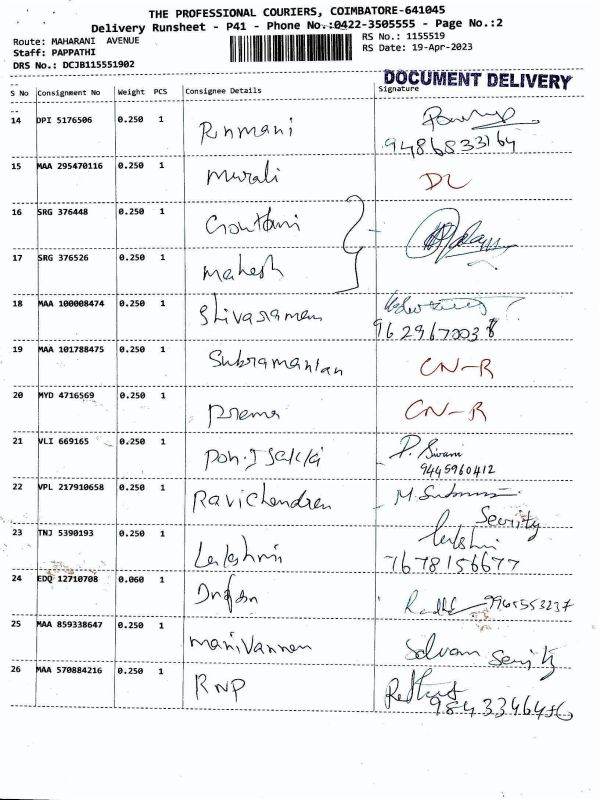 THE PROFESSIONAL COURIERS, COIMBATORE-641045
Delivery Runsheet - P41 - Phone No.:0422-3505555 - Page No.:2
Route: MAHARANI AVENUE RS No.: 1155519
Staff: PAPPATHI RS Date: 19-Apr-2023
DRS No.: DCJB115551902
DOCUMENT DELIVERY
S No Consignment No Weight PCS Consignee Details Signature
14 DPI 5176506 0.250 1 Rnmani
9486833164
15 MAA 295470116 0.250 1 Murali DL
16 SRG 376448 0.250 1 Gouthami
17 SRG 376526 0.250 1 Mahesh
18 MAA 100008474 0.250 1 Shivasaman
9629670038
19 MAA 101788475 0.250 1 Subramanian CN-R
20 MYD 4716569 0.250 1 Prema CN-R
21 VLI 669165 0.250 1 Pon.Isakki P. Sivani
9445960412
22 VPL 217910658 0.250 1 Ravichendren
Security
23 TNJ 5390193 0.250 1 Lakshmi
7678156677
24 EDQ 12710708 0.060 1 9965553237
25 MAA 859338647 0.250 1 Manivannen Selvam
26 MAA 570884216 0.250 1 RNP